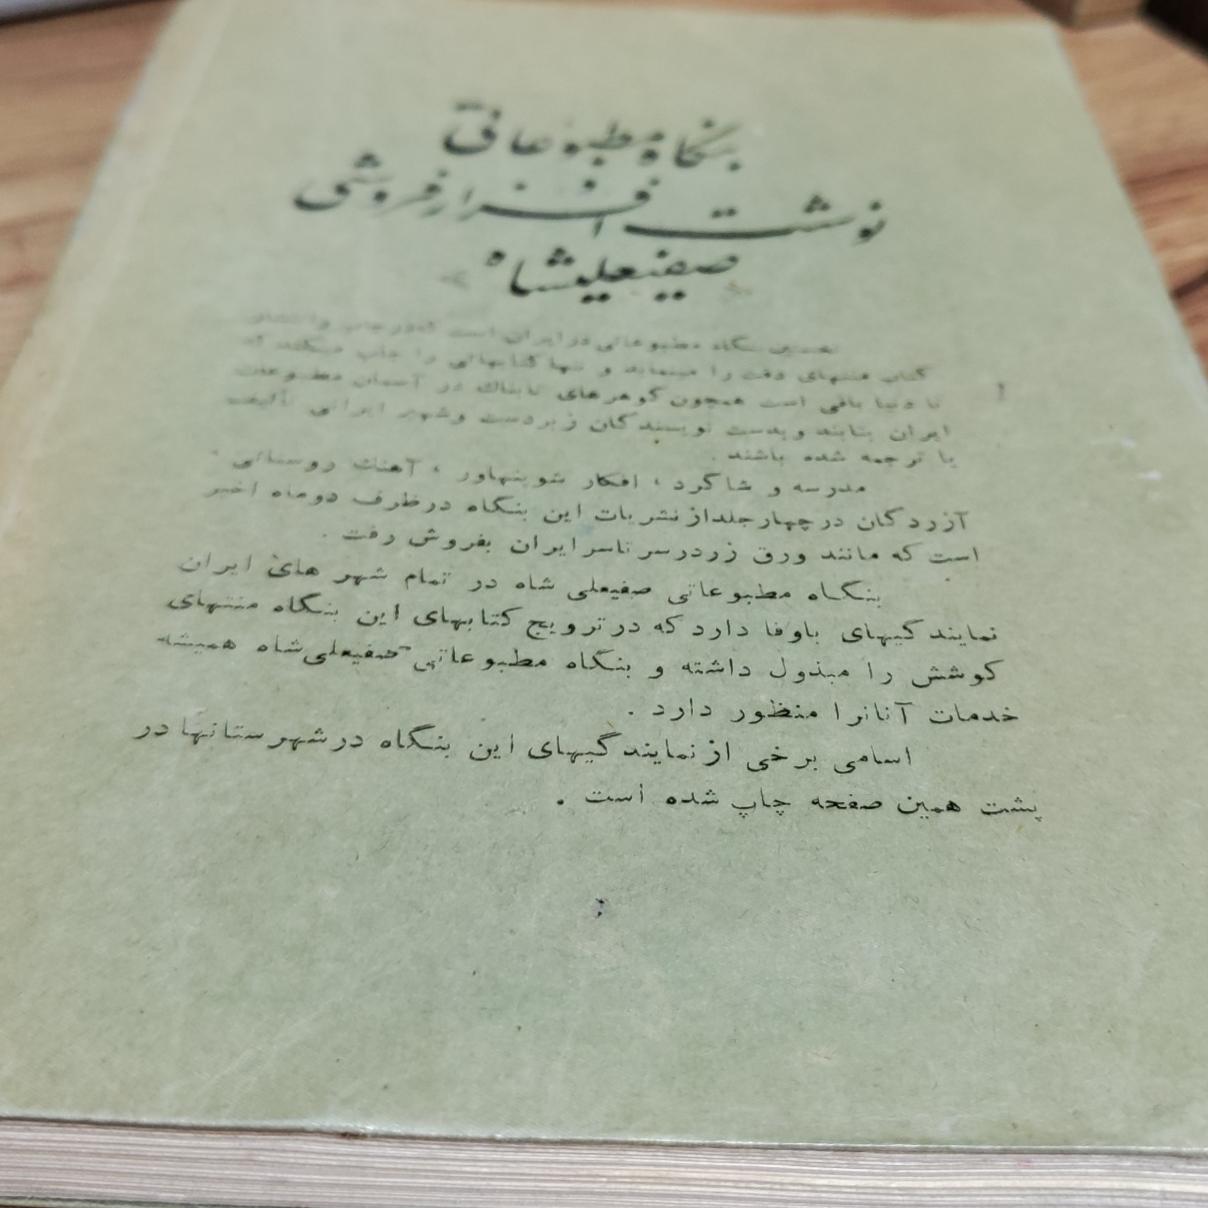 بنگاه مطبوعاتی
نوشت افزار فروشی
صفیعلیشاه
نخستین بنگاه مطبوعاتی در ایران است که در چاپ و انتشار
کتاب منتهای دقت را مینماید و تنها کتابهائی را چاپ میکند که
تا دنیا باقی است همچون گوهرهای تابناک در آسمان مطبوعات
ایران بتابند و بدست نویسندگان زبردست و شهیر ایرانی تألیف
یا ترجمه شده باشند .
مدرسه و شاگرد ، افکار شوپنهاور ، آهنگ روستائی ،
آزردگان در چهار جلد از نشریات این بنگاه در ظرف دو ماه اخیر
است که مانند ورق زر در سرتاسر ایران بفروش رفت .
بنگاه مطبوعاتی صفیعلی شاه در تمام شهر های ایران
نمایندگیهای باوفا دارد که در ترویج کتابهای این بنگاه منتهای
کوشش را مبذول داشته و بنگاه مطبوعاتی صفیعلی‌شاه همیشه
خدمات آنانرا منظور دارد .
اسامی برخی از نمایندگیهای این بنگاه در شهرستانها در
پشت همین صفحه چاپ شده است .